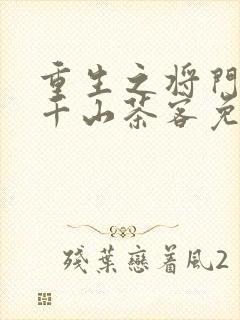 重生之将門
千山茶客免
殘葉戀着風2